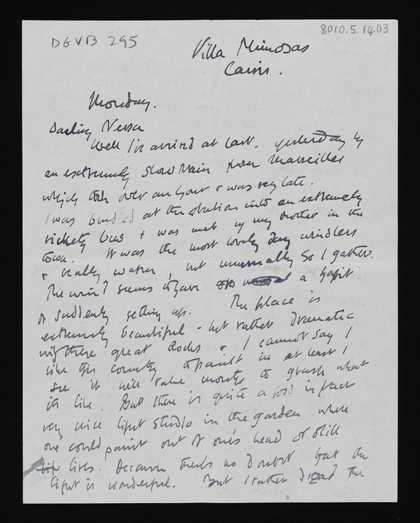 DGVB 295
8010.5.1403
Villa Mimosas
Cassis.
Monday.
Darling Nessa
Well I've arrived at last. yesterday by
an extremely slow train from Marseilles
which took over an hour & was very late.
I was bundled at the station into an extremely
rickety bus & was met by my mother in the
town. It was the most lovely day windless
& really warm, but unusually so I gather.
The wind seems to have a habit
of suddenly getting up. The place is
extremely beautiful - but rather dramatic
with these great rocks & I cannot say I
like the country to paint in at least I
see it will take months to grasp what
its like. But there is quite a good in fact
very nice light studio in the garden where
one could paint out of one's head or still
lives. Because there's no doubt but the
light is wonderful. But I rather dread the